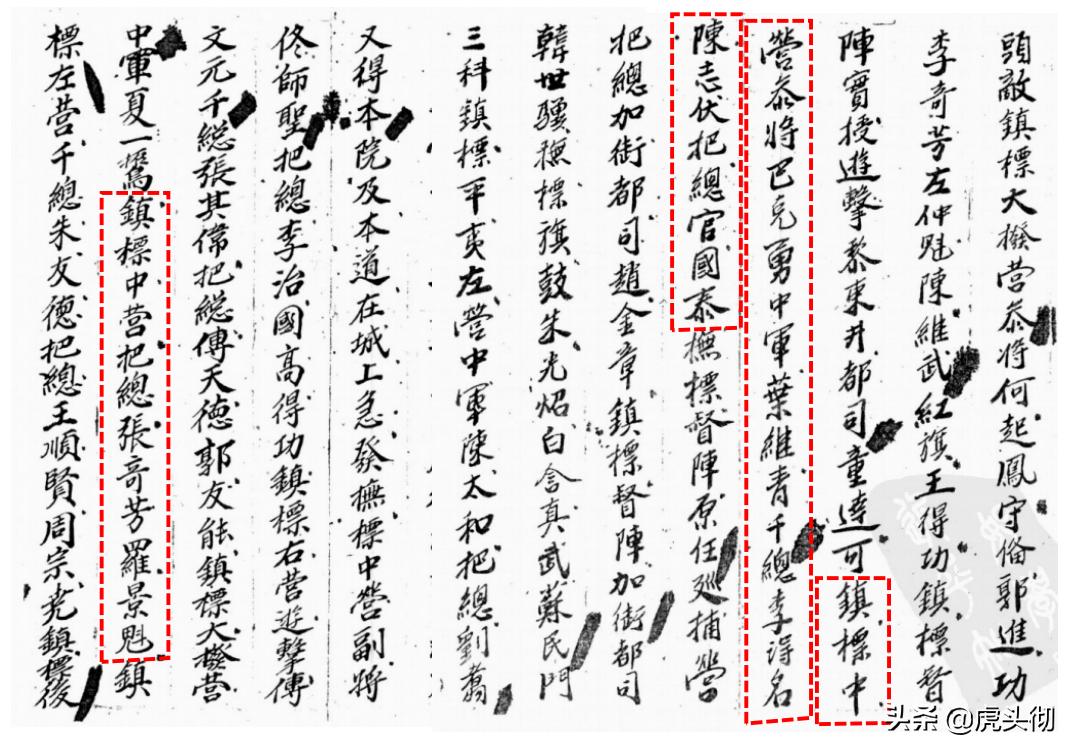 頭敵鎮標大撥营叅将何起鳳守俻郭進功
李奇芳左仲魁陳維武紅旗王得功鎮標督
陣實授遊擊黎東井都司童達可鎮標中
營叅将巴克勇中軍葉維青千總李得名
陳志伏把總官國泰撫標督陣原任廵捕营
把總加銜都司趙金章鎮標督陣加銜都司
韓世彊撫標旗鼓朱光炤白含真武蘇民門
三科鎮標平夷左營中軍陳太和把總劉嘉
又得本院及本道在城上急發撫標中营副将
佟師聖把總李治國高得功鎮標右营遊擊傅
文元千総張其偉把総傅天徳郭友能鎮標大撥营
中軍夏一鶚鎮標中营把總張奇芳羅景魁鎮
標左营千總朱友德把總王順賢周宗尧鎮標後
头条 @虎头彻